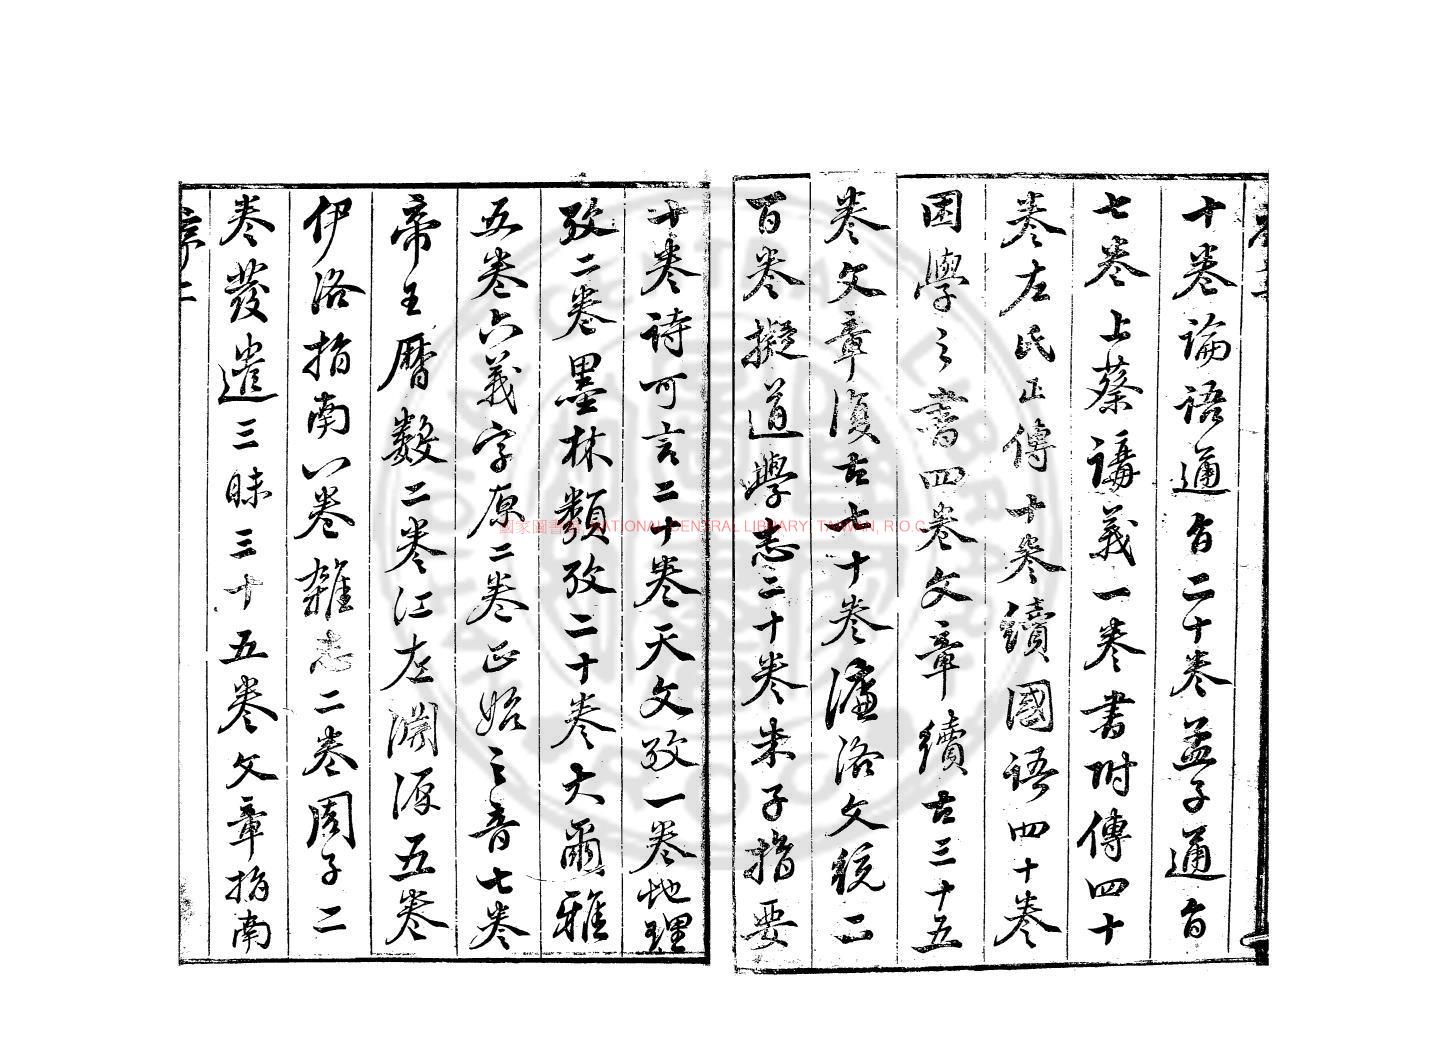 十卷論語通旨二十卷孟子通旨
七卷上蔡講義一卷書附傳四十
卷左氏正傳十卷續國語四十卷
困學之書四卷文章續古三十五
卷文章復古七十卷濂洛文統二
百卷擬道學志二十卷朱子指要
十卷詩可言二十卷天文攷一卷地理
攷二卷墨林類攷二十卷大爾雅
五卷六義字原二卷正始之音七卷
帝王曆數二卷江左淵源五卷
伊洛指南八卷雜志二卷周子二
卷發遣三昧三十五卷文章指南
序二
國家圖書館 NATIONAL CENTRAL LIBRARY, TAIWAN, R.O.C